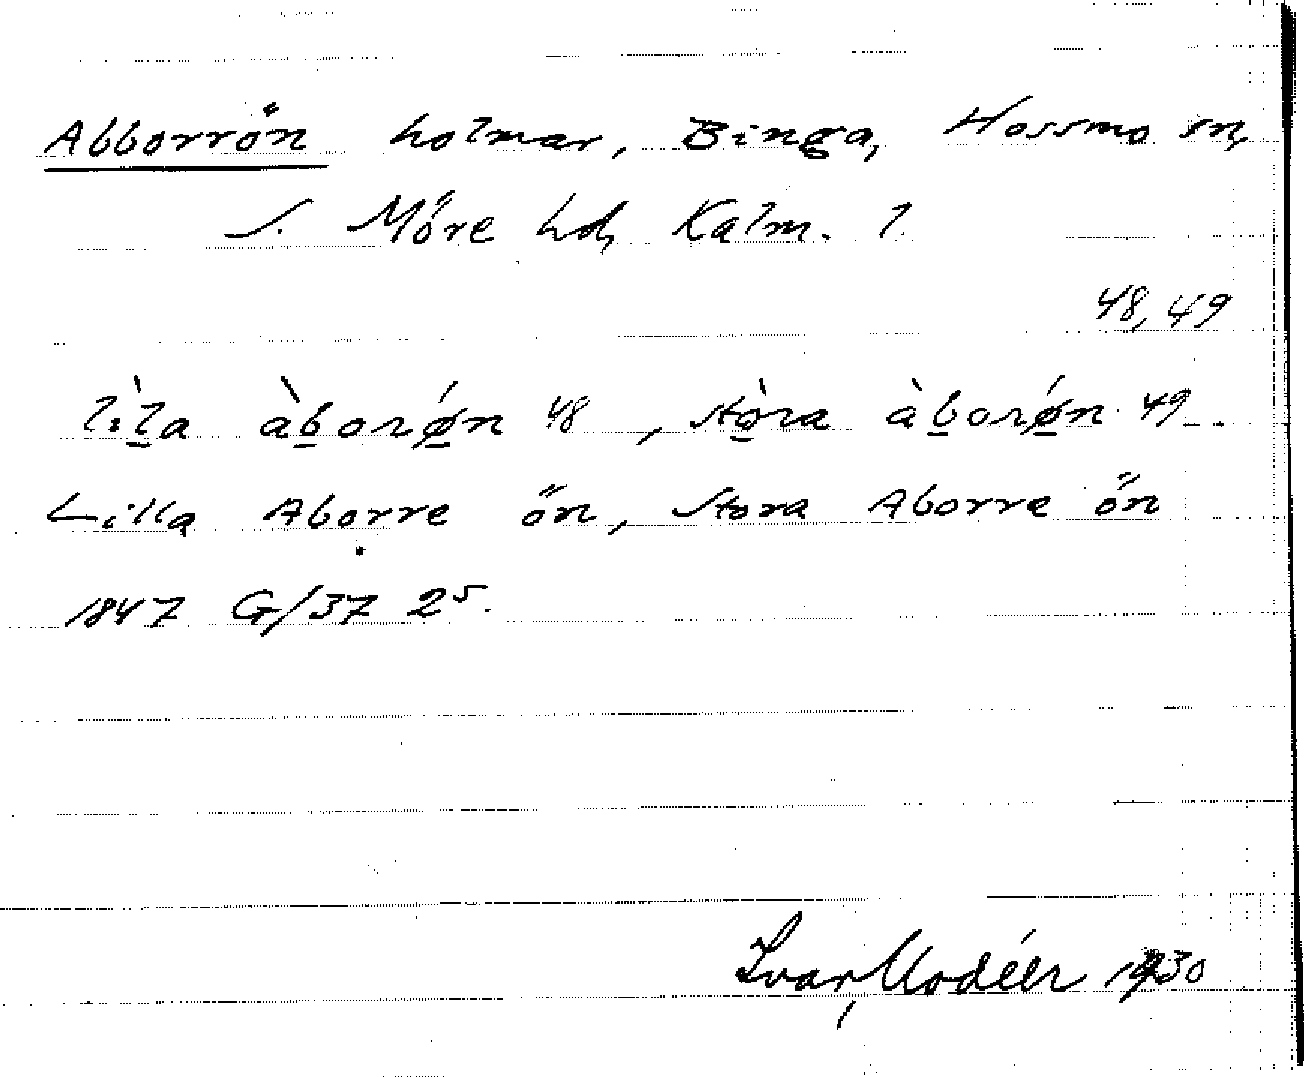 Abborrön holmar, Binga, Hossmo sn,
S. Möre hd, Kalm. l.
48, 49
lìl̠a àb̠orǿ̠n 48, stò̠ra àb̠orǿ̠n 49.
Lilla Aborre ön, Stora Aborre ön
1847 G/37 25.
Ivar Modéer 1930